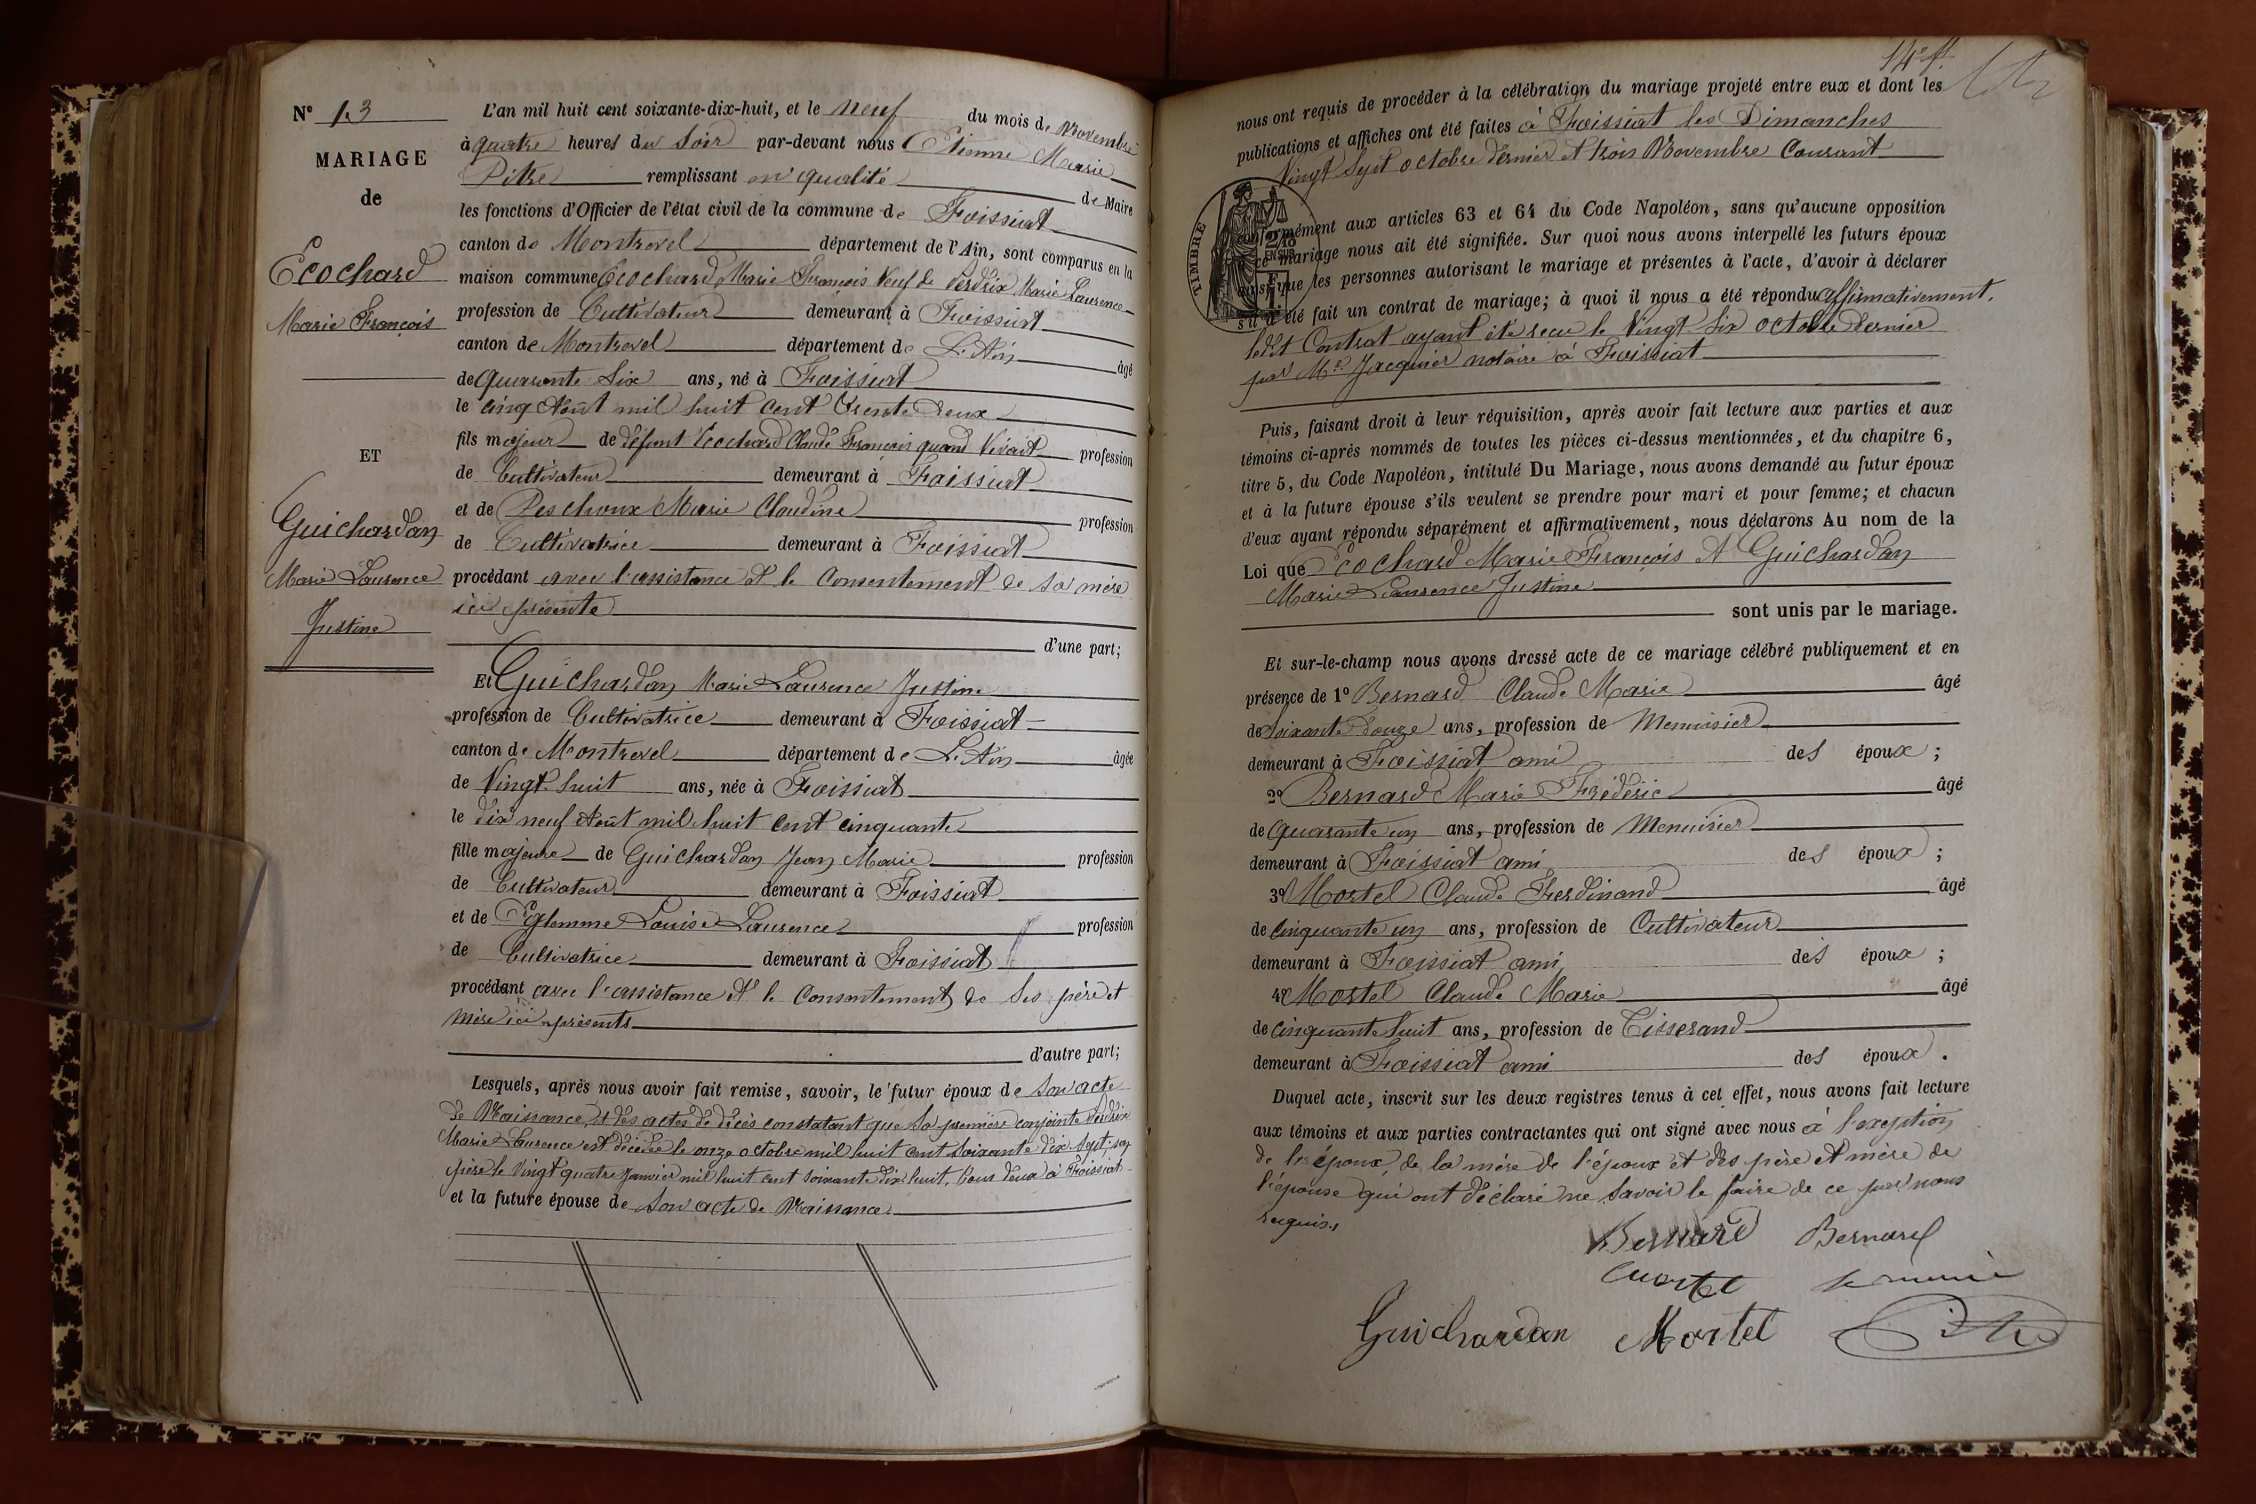 N° 13
MARIAGE
de
Ecochard
Marie François
ET
Guichardan
Marie Laurence
Justine
L'an mil huit cent soixante-dix-huit, et le neuf du mois de Novembre
à quatre heures du Soir par-devant nous Etienne Marie
Pitre remplissant en qualité de Maire
les fonctions d'Officier de l'état civil de la commune de Foissiat
canton de Montrevel département de l'Ain, sont comparus en la
maison commune Ecochard Marie François Veuf de Perdrix Marie Laurence
profession de Cultivateur demeurant à Foissiat
canton de Montrevel département de L'Ain âgé
de quarante Six ans, né à Foissiat
le cinq Août mil huit cent trente deux
fils majeur de défunt Ecochard Claude François quand Vivait profession
de Cultivateur demeurant à Foissiat
et de Peschoux Marie Claudine profession
de Cultivatrice demeurant à Foissiat
procédant avec l'assistance et le Consentement de sa mère
ici présente
d'une part;
Et Guichardan Marie Laurence Justine
profession de Cultivatrice demeurant à Foissiat
canton de Montrevel département de L'Ain âgée
de Vingt huit ans, née à Foissiat
le dix neuf Août mil huit cent cinquante
fille majeure de Guichardan Jean Marie profession
de Cultivateur demeurant à Foissiat
et de Eglemme Louise Laurence profession
de Cultivatrice demeurant à Foissiat
procédant avec l'assistance et le Consentement de Ses père et
mère ici présents
d'autre part;
Lesquels, après nous avoir fait remise, savoir, le futur époux de Son acte
de Naissance, et des actes de décès constatant que Sa première conjointe Perdrix
Marie Laurence est décédée le onze octobre mil huit cent Soixante dix Sept, son
père le Vingt quatre Janvier mil huit cent soixante dix huit, tous deux à Foissiat
et la future épouse de Son acte de Naissance
14 ff.
nous ont requis de procéder à la célébration du mariage projeté entre eux et dont les
publications et affiches ont été faites à Foissiat les Dimanches
Vingt Sept octobre dernier et trois Novembre Courant
TIMBRE
conformément aux articles 63 et 64 du Code Napoléon, sans qu'aucune opposition
ce mariage nous ait été signifiée. Sur quoi nous avons interpellé les futurs époux
ainsi que les personnes autorisant le mariage et présentes à l'acte, d'avoir à déclarer
s'il a été fait un contrat de mariage; à quoi il nous a été répondu affirmativement.
ledit Contrat ayant été recu le Vingt Six octobre dernier
par Me Jacquier notaire à Foissiat
Puis, faisant droit à leur réquisition, après avoir fait lecture aux parties et aux
témoins ci-après nommés de toutes les pièces ci-dessus mentionnées, et du chapitre 6,
titre 5, du Code Napoléon, intitulé Du Mariage, nous avons demandé au futur époux
et à la future épouse s'ils veulent se prendre pour mari et pour femme; et chacun
d'eux ayant répondu séparément et affirmativement, nous déclarons Au nom de la
Loi que Ecochard Marie François et Guichardan
Marie Laurence Justine
sont unis par le mariage.
Et sur-le-champ nous avons dressé acte de ce mariage célébré publiquement et en
présence de 1° Bernard Claude Marie âgé
de Soixante Douze ans, profession de Menuisier
demeurant à Foissiat ami des époux ;
2° Bernard Marie Frédéric âgé
de quarante un ans, profession de Menuisier
demeurant à Foissiat ami des époux ;
3° Mortel Claude Ferdinand âgé
de cinquante un ans, profession de Cultivateur
demeurant à Foissiat ami des époux ;
4° Mortel Claude Marie âgé
de cinquante huit ans, profession de Tisserand
demeurant à Foissiat ami des époux .
Duquel acte, inscrit sur les deux registres tenus à cet effet, nous avons fait lecture
aux témoins et aux parties contractantes qui ont signé avec nous à l'exception
de les époux, de la mère de l'époux et des père et mère de
l'épouse qui ont déclaré ne Savoir le faire de ce par nous
requis.
Bernard Bernard
Mortel
Guichardan Mortel Pitre